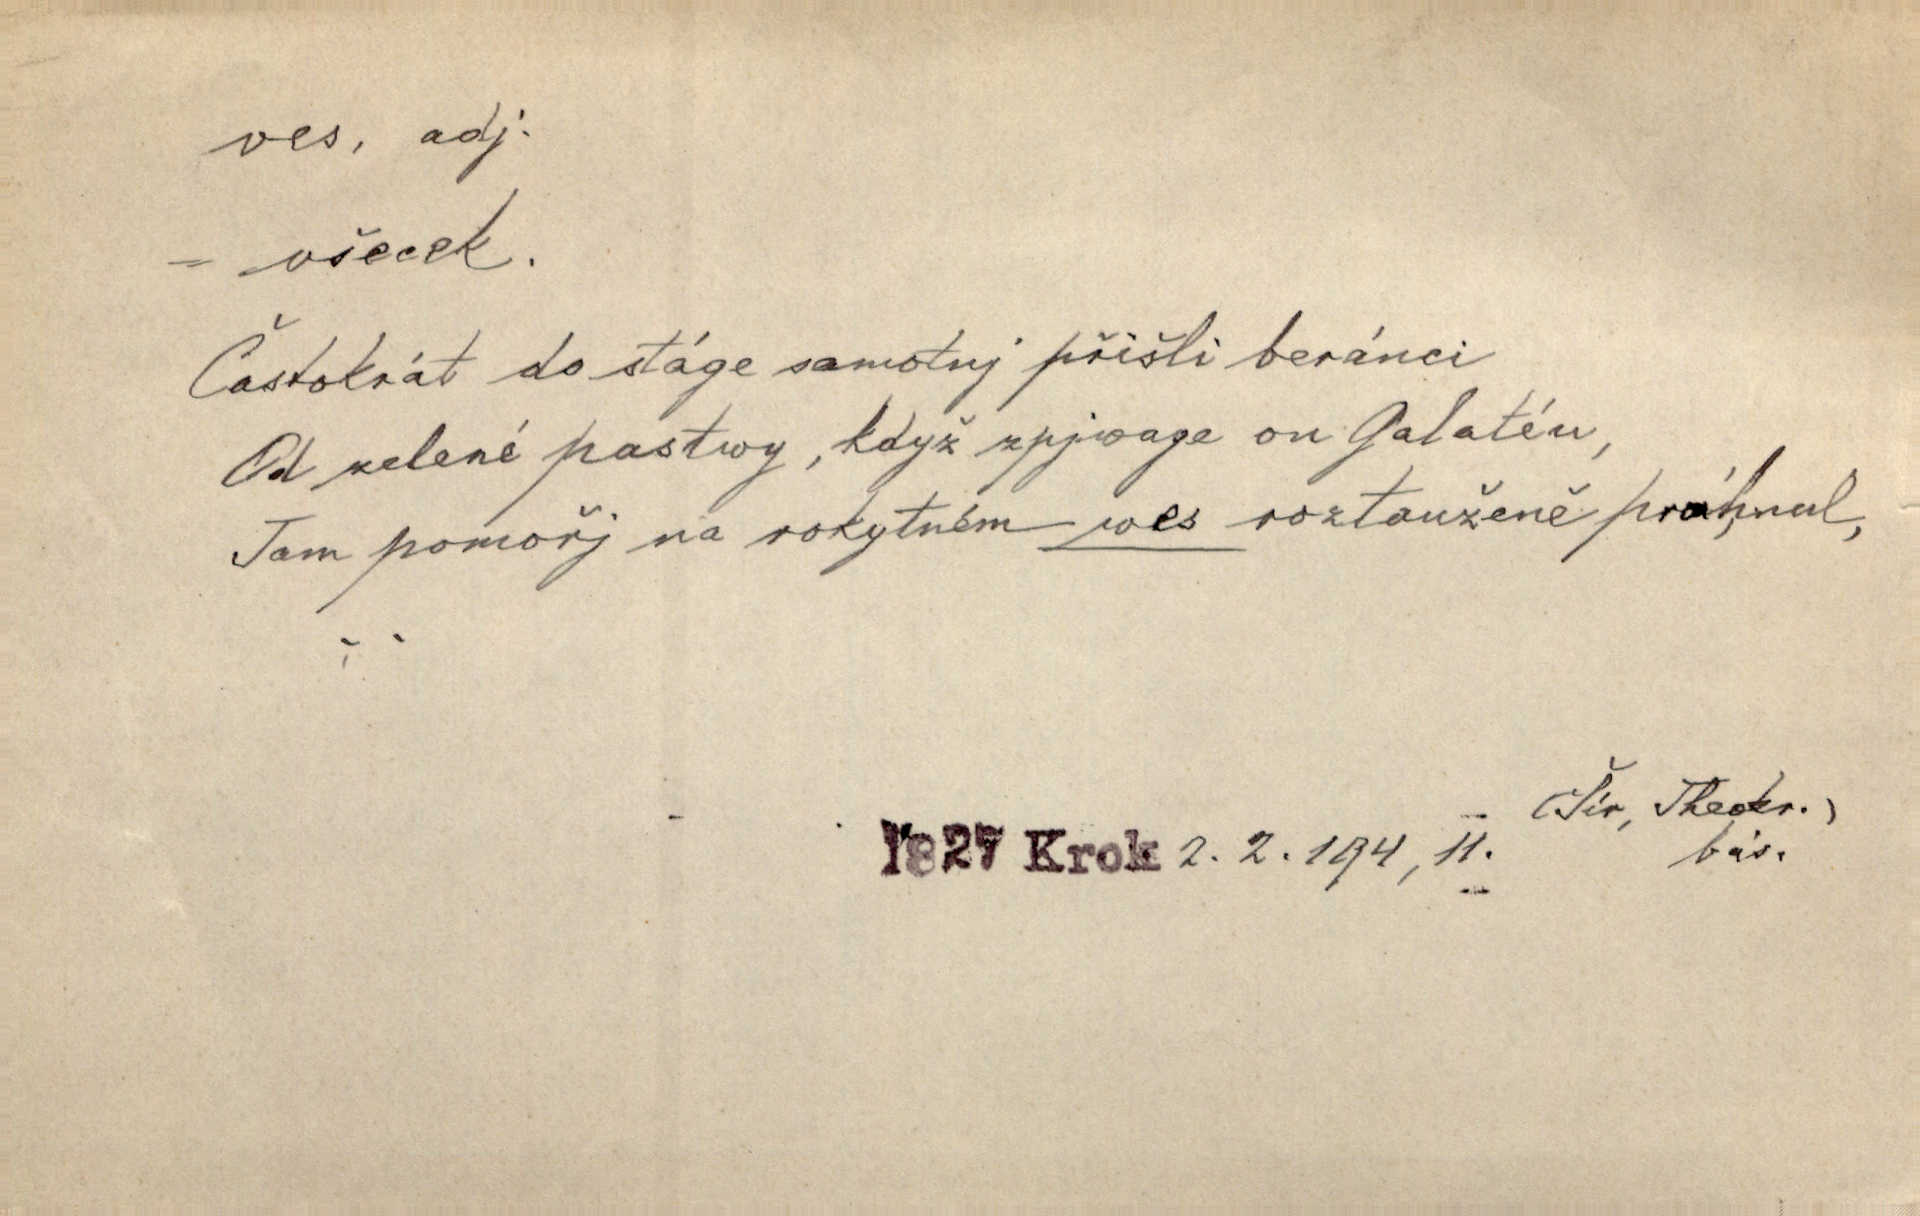 ves, adj.
= všecek.
Častokrát do stáge samotnj přišli beránci
Od zelené pastwy, když zpjwage on Galatéu,
Tam pomořj na rokytném wes roztauženě práhnul,
1827 Krok 2. 2. 194, 11. (Šír, Theokr.)
bás.